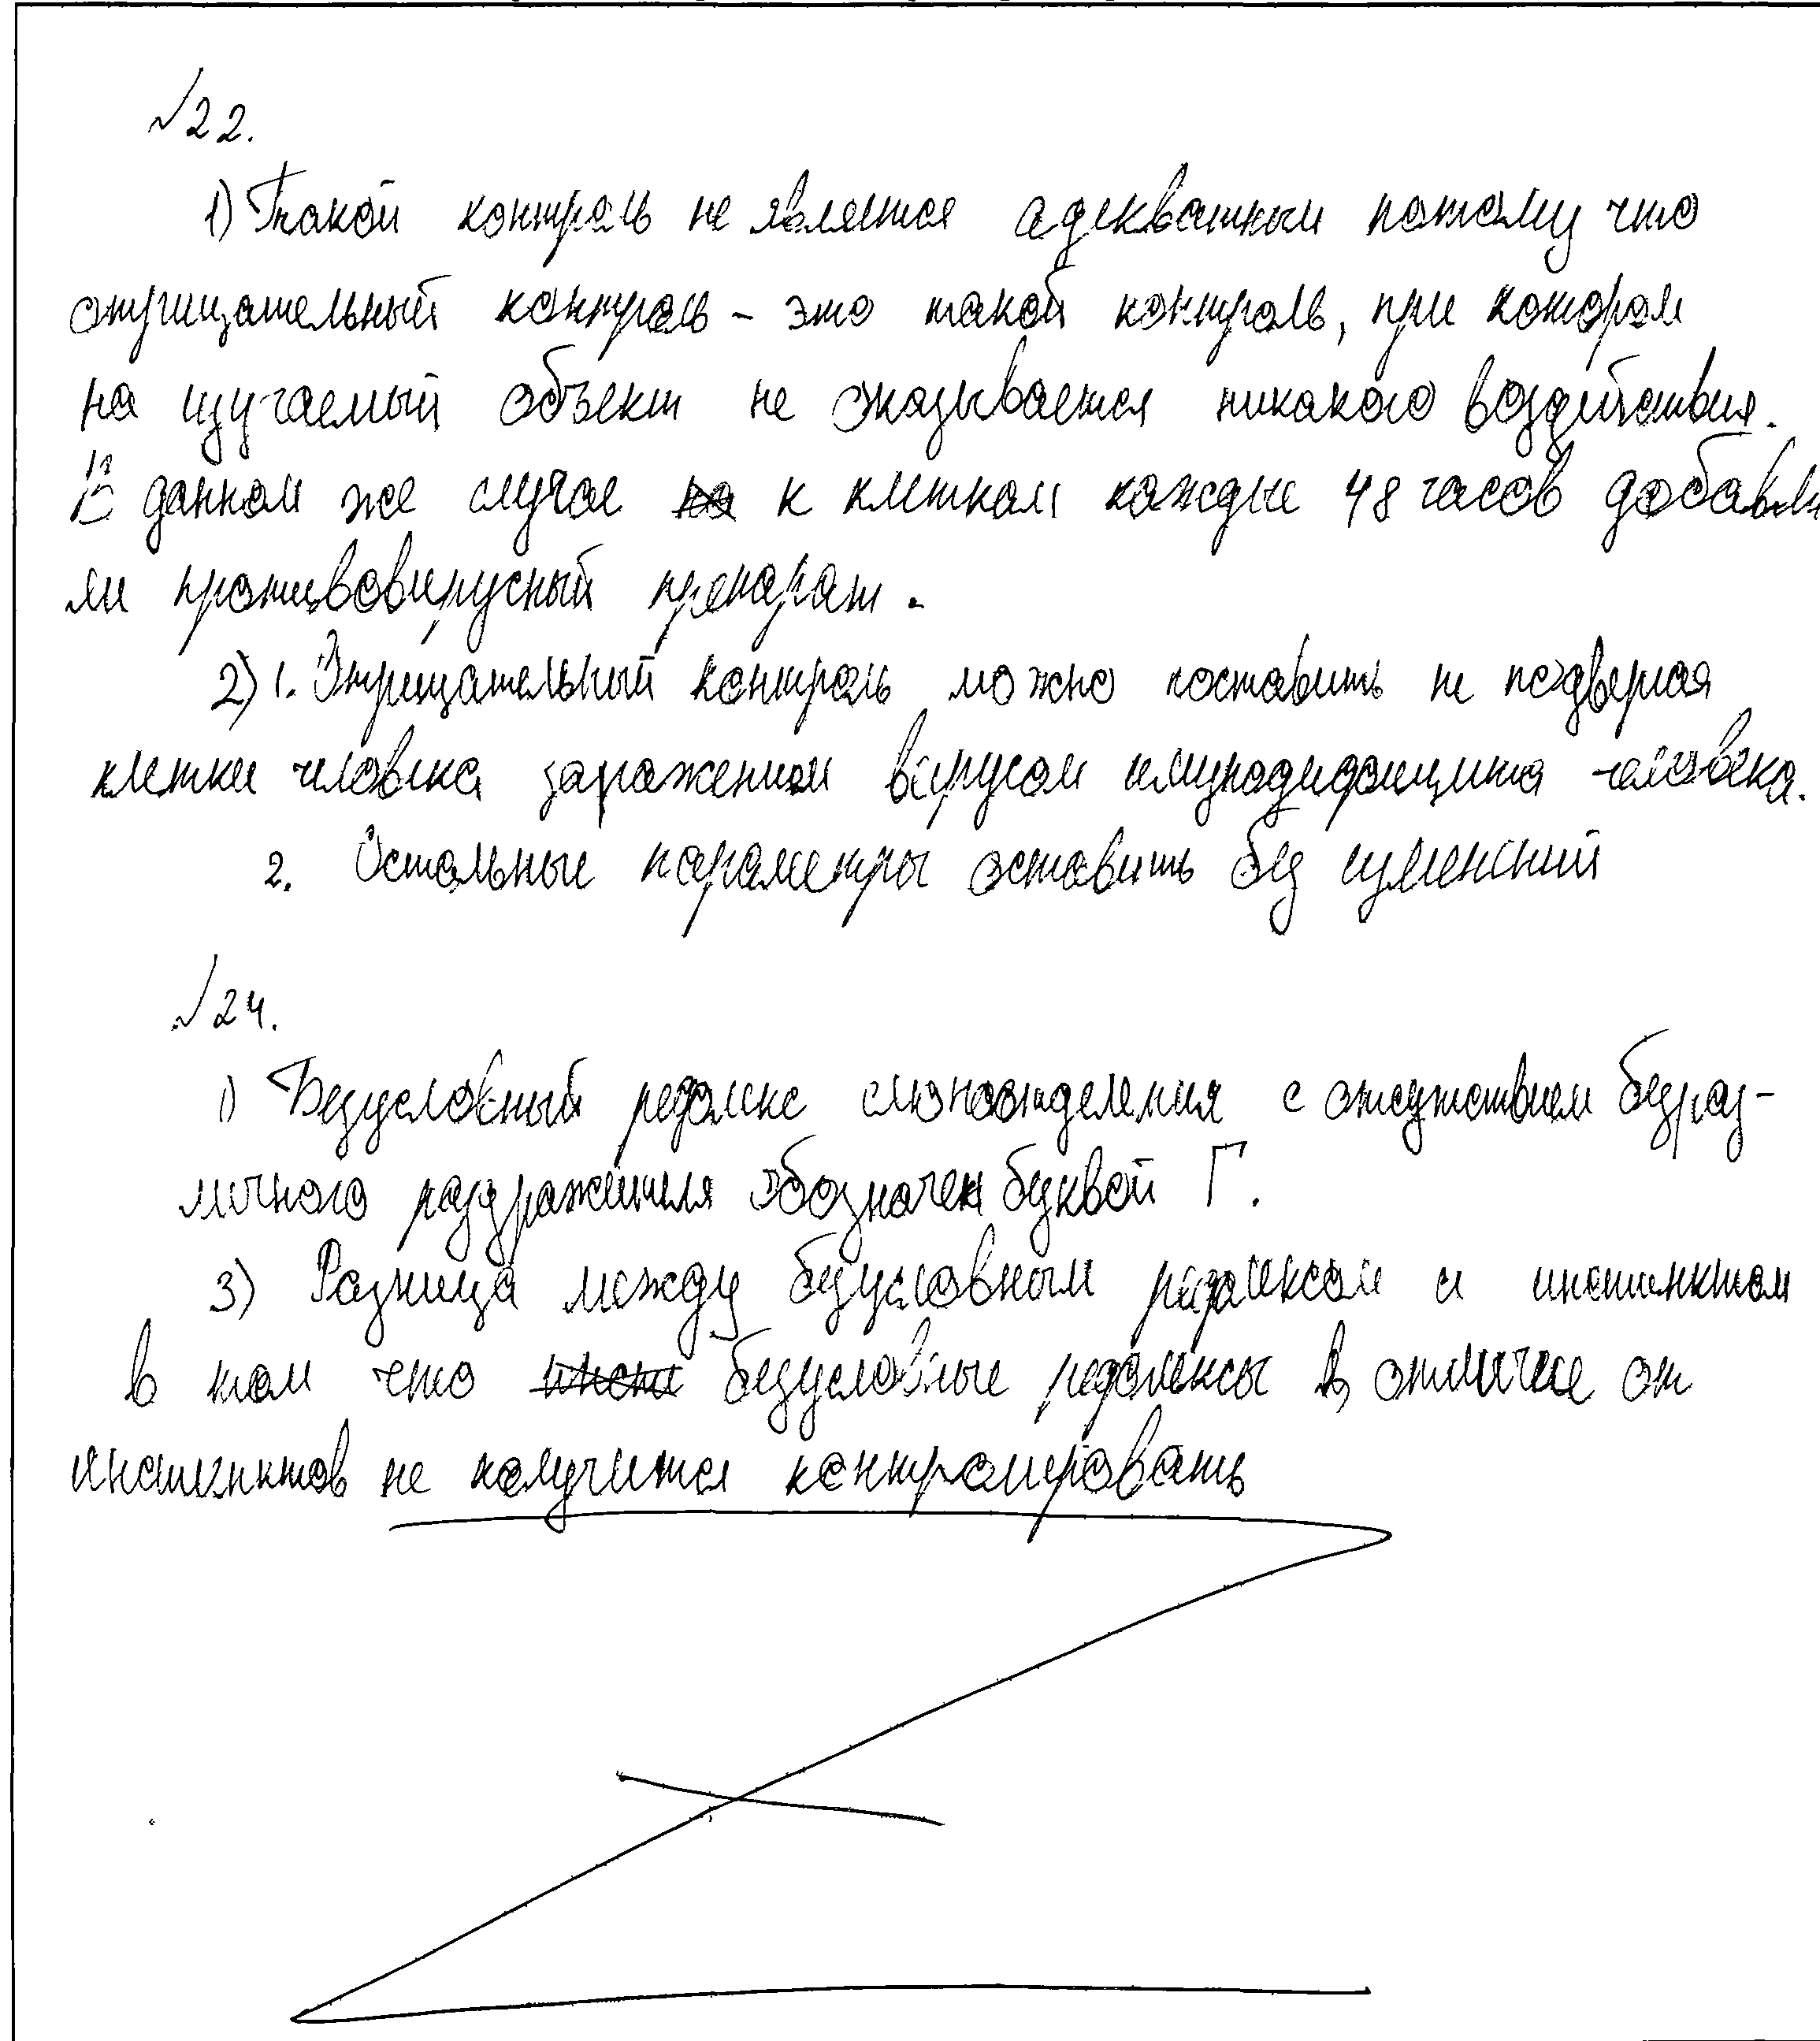 №22.
1) Такой контроль не является адекватным потому что
отрицательный контроль - это такой контроль, при котором
на изучаемый объект не оказывается никакого воздействия.
В данном же случае к клеткам каждые 48 часов добавля
ли противовирусный препарат.
2) 1. Отрицательный контроль можно поставить не подвергая
клетки человека заражением вирусом имунодефицита человека.
2. Остальные параметры оставить без изменений
№24.
1) Безусловный рефлекс слюноотделения с отсутствием безраз-
личного раздражителя обозначен буквой Г.
3) Разница между безусловным рефлексом и инстинктом
в том что безусловные рефлексы в отличие от
инстинктов не получится контролировать